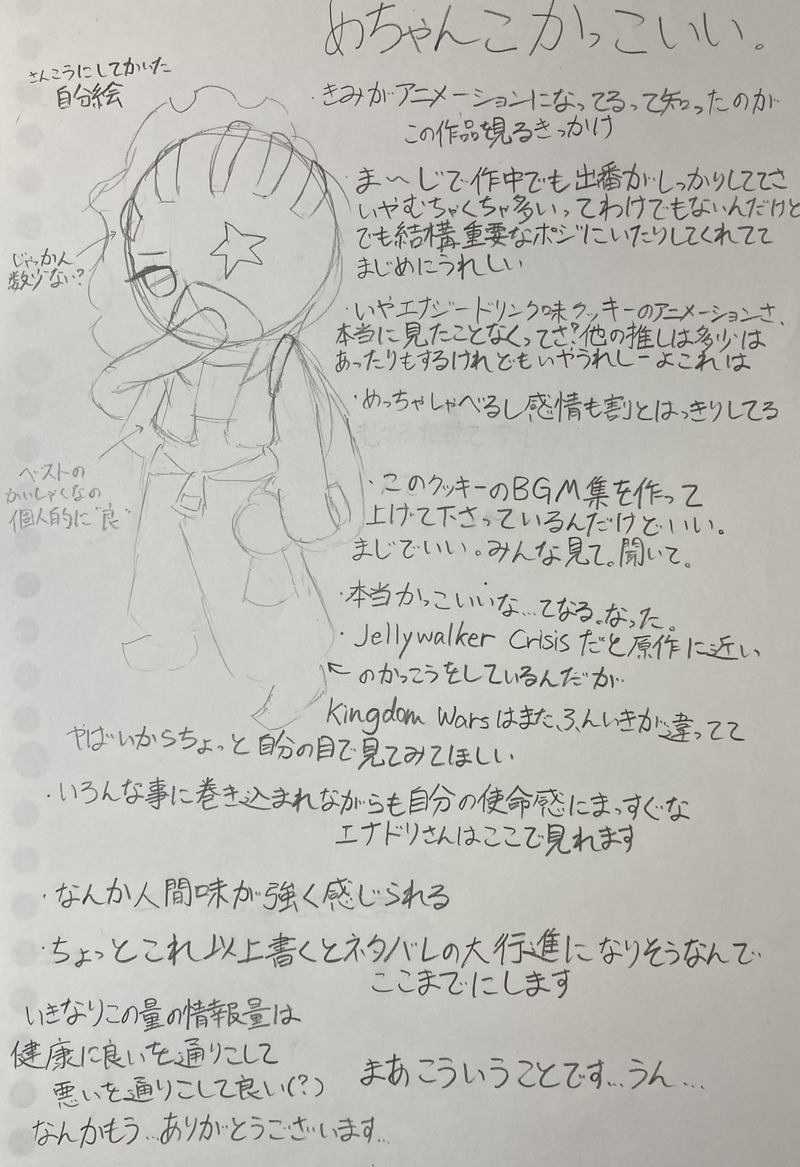 めちゃんこかっこいい。
さんこうにしてかいた
自分絵
・きみがアニメーションになってるって知ったのが
この作品を見るきっかけ
・ま〜じで作中でも出番がしっかりしててさ
いやむちゃくちゃ多いってわけでもないんだけど
でも結構重要なポジにいたりしてくれてて
まじめにうれしい
じゃっかん
数少ない?
・いやエナジードリンク味クッキーのアニメーションさ、
本当に見たことなくってさ?他の推しは多少は
あったりもするけれどもいやうれしーよこれは
・めっちゃしゃべるし感情も割とはっきりしてる
ベストの
かいしゃくなの
個人的に"良"
・このクッキーのBGM集を作って
上げて下さっているんだけどいい。
まじでいい。みんな見て。聞いて。
・本当かっこいいな…てなる。なった。
・Jellywalker Crisisだと原作に近い
のかっこうをしているんだが
Kingdom Warsはまた、ふんいきが違ってて
やばいからちょっと自分の目で見てみてほしい
・いろんな事に巻き込まれながらも自分の使命感にまっすぐな
エナドリさんはここで見れます
・なんか人間味が強く感じられる
・ちょっとこれ以上書くとネタバレの大行進になりそうなんで
ここまでにします
いきなりこの量の情報量は
健康に良いを通りこして
悪いを通りこして良い(?)
なんかもう…ありがとうございます…
まあこういうことです…うん…